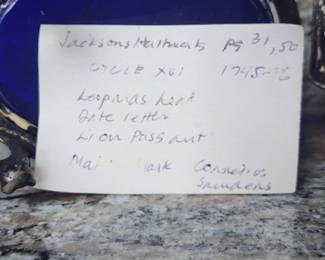 Jacksons Hallmarks pg 31, 50
CYCLE XVI 1795-
Leopards head
Date letter
Lion Passant
Mark Cornelius
Saunders